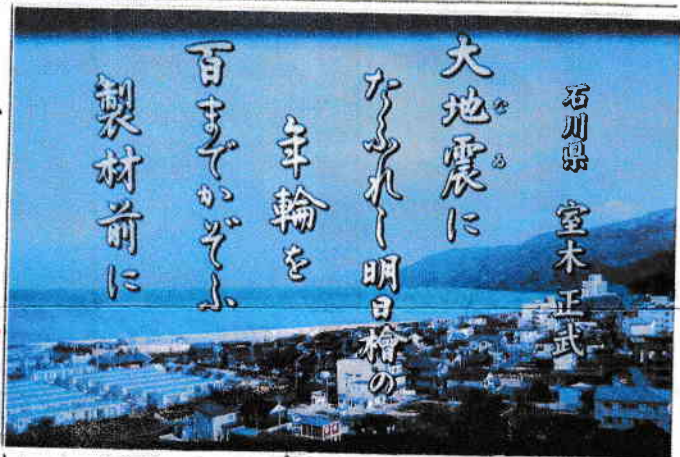 石川県 室木正武
大地震に
なゐ
たふれし明日檜の
年輪を
百までかぞふ
製材前に